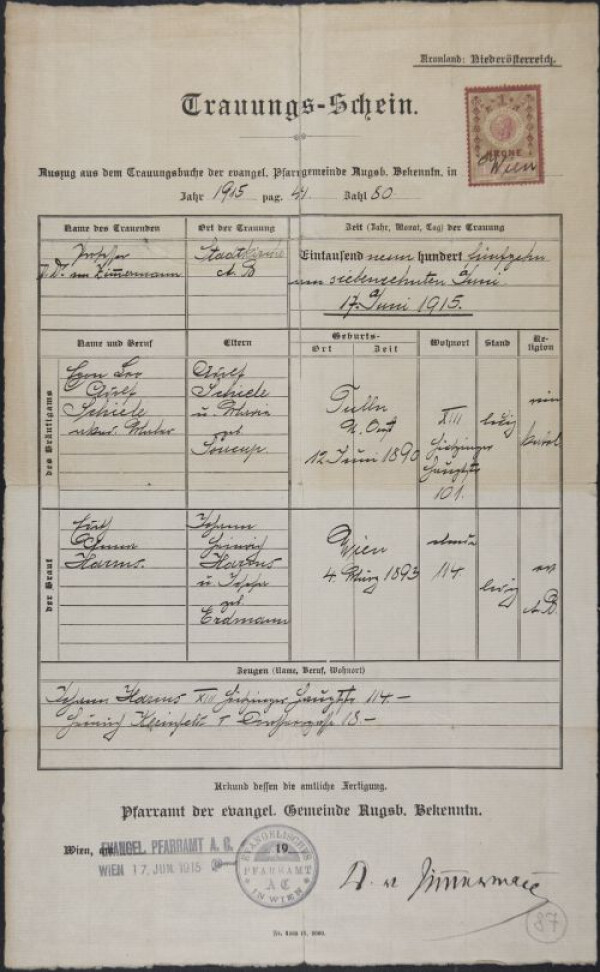 Kronland: Niederösterreich.
Trauungs-Schein.
1
KRONE
Auszug aus dem Trauungsbuche der evangel. Pfarrgemeinde Augsb. Bekenntn. in Wien
Jahr 1915 pag. 41 Zahl 80
Name des Trauenden
Ort der Trauung
Zeit (Jahr, Monat, Tag) der Trauung
Professor
Zimmermann
Stadtkirche
A. B
Eintausend neun hundert fünfzehn
am siebzehnten Juni
17. Juni 1915.
Name und Beruf
Eltern
Geburts-
Ort
Zeit
Wohnort
Stand
Religion
des Bräutigams
Egon Leo
Adolf
Schiele
Maler
Adolf
Schiele
u. Marie
geb
Soucup.
Tulln
12 Juni 1890
XIII
Hietzinger
Hauptstr
101.
ledig
röm
kathol
der Braut
Edith
Anna
Harms.
Johann
Heinrich
Harms
u. Josefa
geb.
Erdmann
Wien
4. März 1893
ebenda
114.
ledig
ev
A. B.
Zeugen (Name, Beruf, Wohnort)
Johann Harms XIII Hietzinger Hauptstr 114.–
Heinrich I 18.–
Urkund dessen die amtliche Fertigung.
Pfarramt der evangel. Gemeinde Augsb. Bekenntn.
Wien, am 19
EVANGEL. PFARRAMT A. C.
WIEN 17. JUN. 1915
EVANGELISCHES
PFARRAMT
A C
IN WIEN
Zimmermann
87